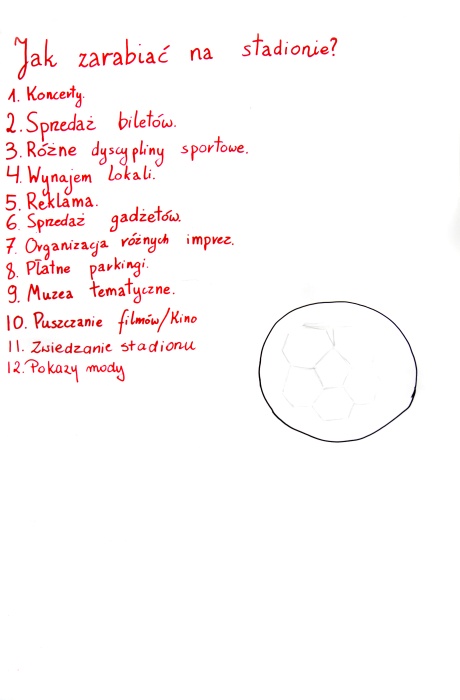 Jak zarabiać na stadionie?
1. Koncerty.
2. Sprzedaż biletów.
3. Różne dyscypliny sportowe.
4. Wynajem lokali.
5. Reklama.
6. Sprzedaż gadżetów.
7. Organizacja różnych imprez.
8. Płatne parkingi.
9. Muzea tematyczne.
10. Puszczanie filmów/Kino
11. Zwiedzanie stadionu
12. Pokazy mody